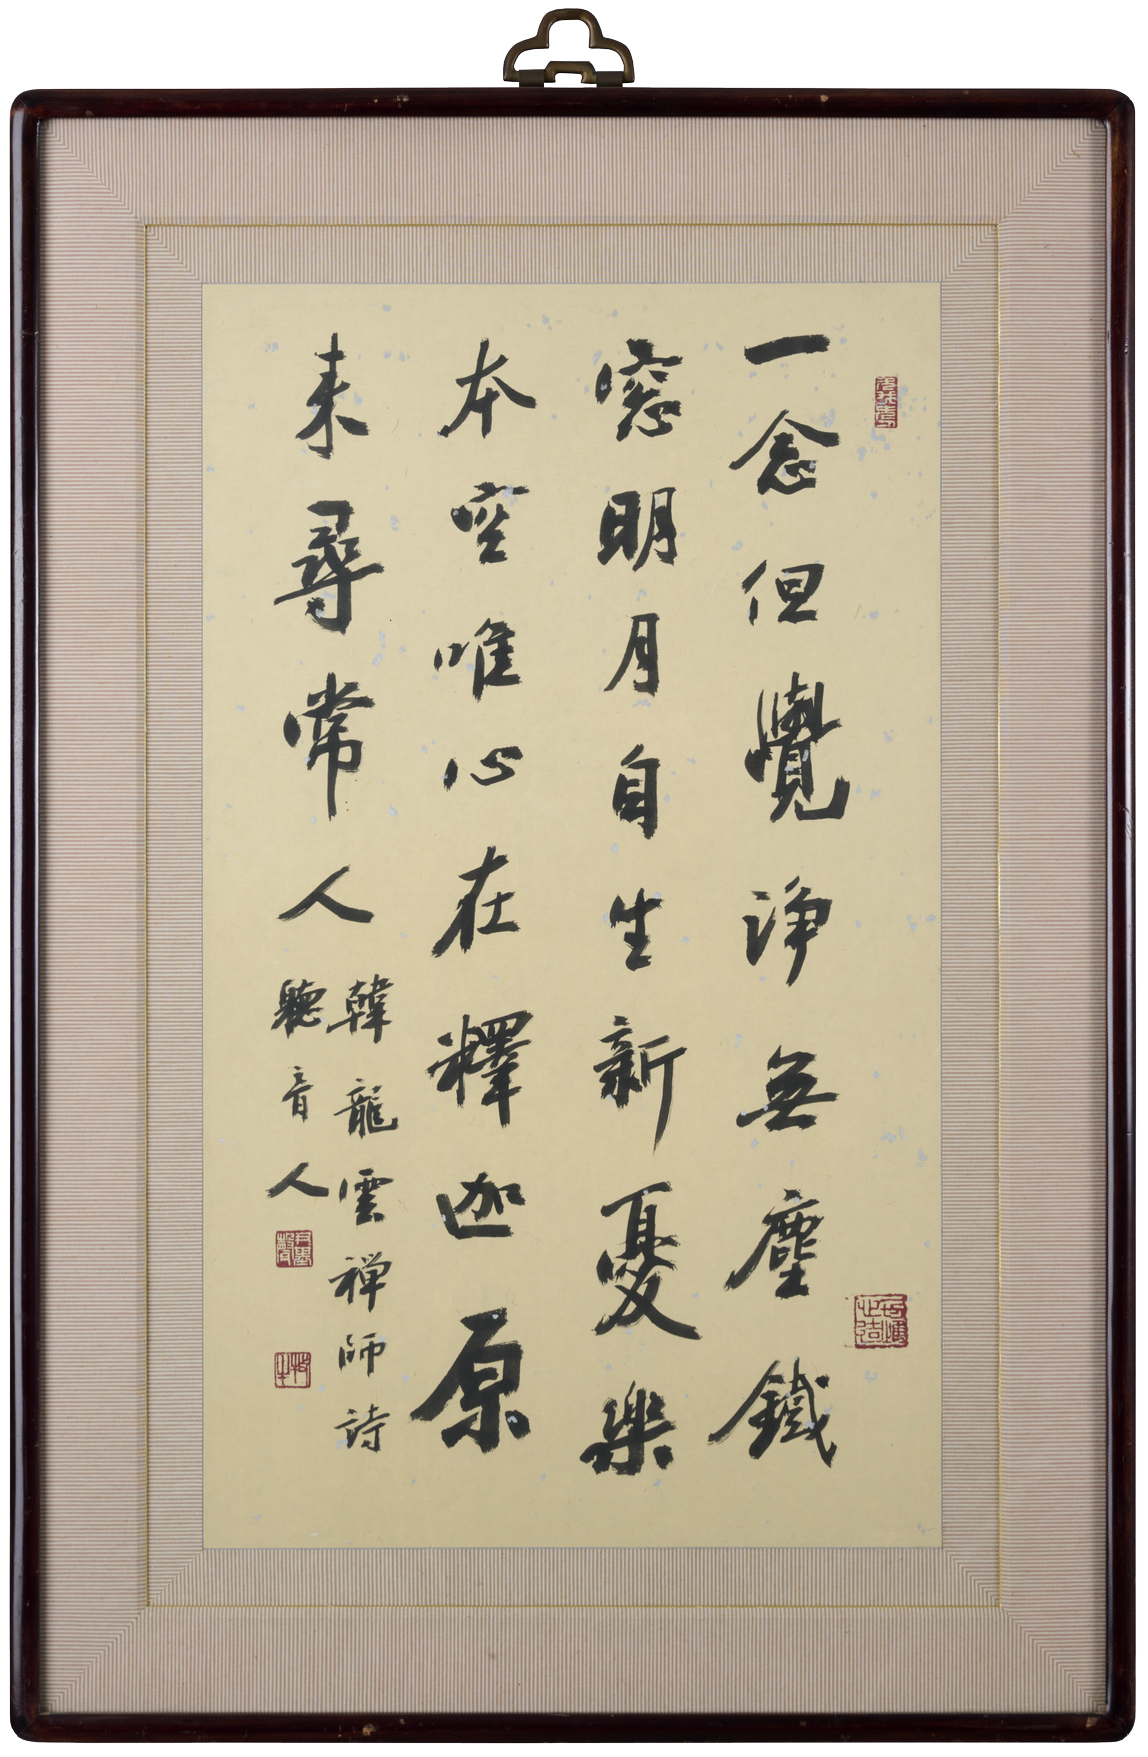 一念但覺淨無塵鐵
窓明月自生新憂樂
本空唯心在釋迦原
来尋常人
韓龍雲禅師詩
聽音人